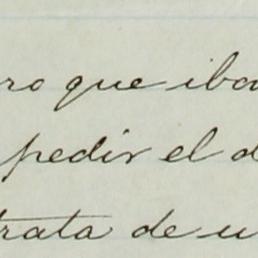 ro que iba
pedir el d
trata de u